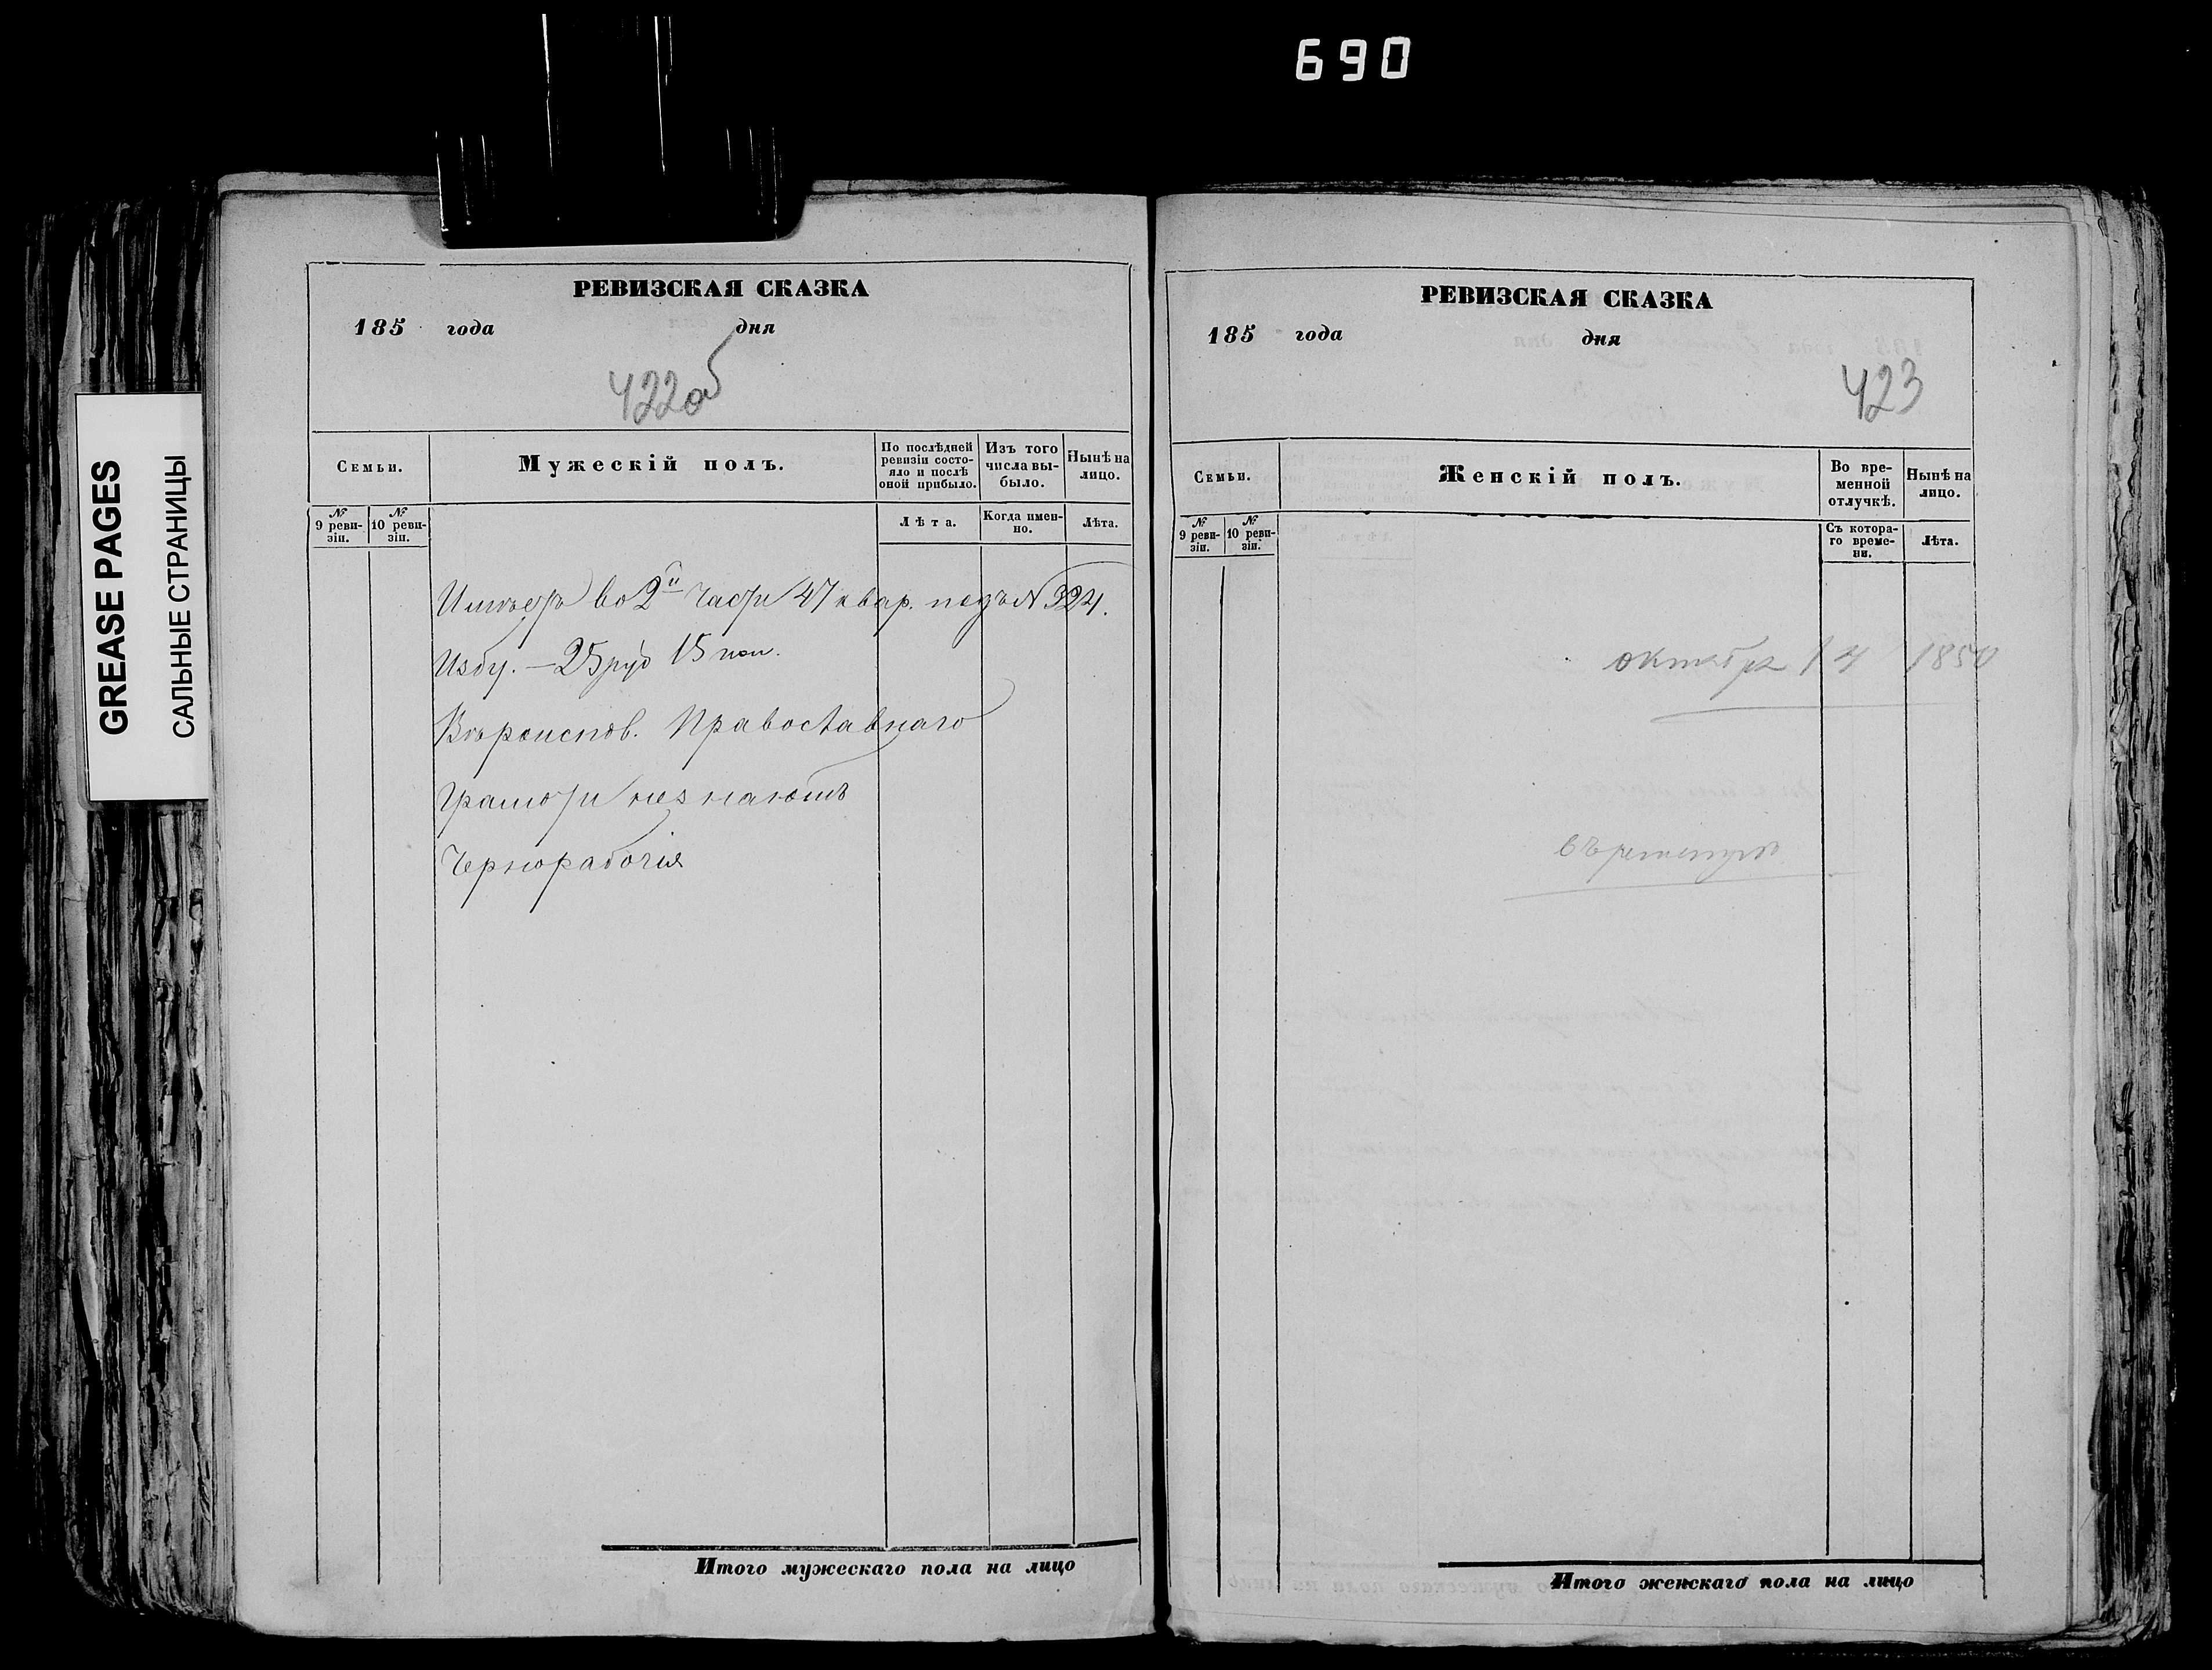 690
GREASE PAGES
САЛЬНЫЕ СТРАНИЦЫ
РЕВИЗСКАЯ СКАЗКА
185 года дня
422об
Семьи.
Мужескій полъ.
По послѣдней ревизіи состояло и послѣ оной прибыло.
Изъ того числа выбыло.
Нынѣ на лицо.
№ 9 ревизіи.
№ 10 ревизіи.
Лѣта.
Когда именно.
Лѣта.
Имѣетъ во 2й части 47 квар. подъ № 324.
Избу. — 25 руб 15 коп.
Вѣроиспов. Православнаго
Грамоти незнаютъ
Чернорабочія
Итого мужескаго пола на лицо
РЕВИЗСКАЯ СКАЗКА
185 года дня
423
Семьи.
Женскій полъ.
Во временной отлучкѣ.
Нынѣ на лицо.
№ 9 ревизіи.
№ 10 ревизіи.
Съ котораго времени.
Лѣта.
октября 14 1850
Итого женскаго пола на лицо